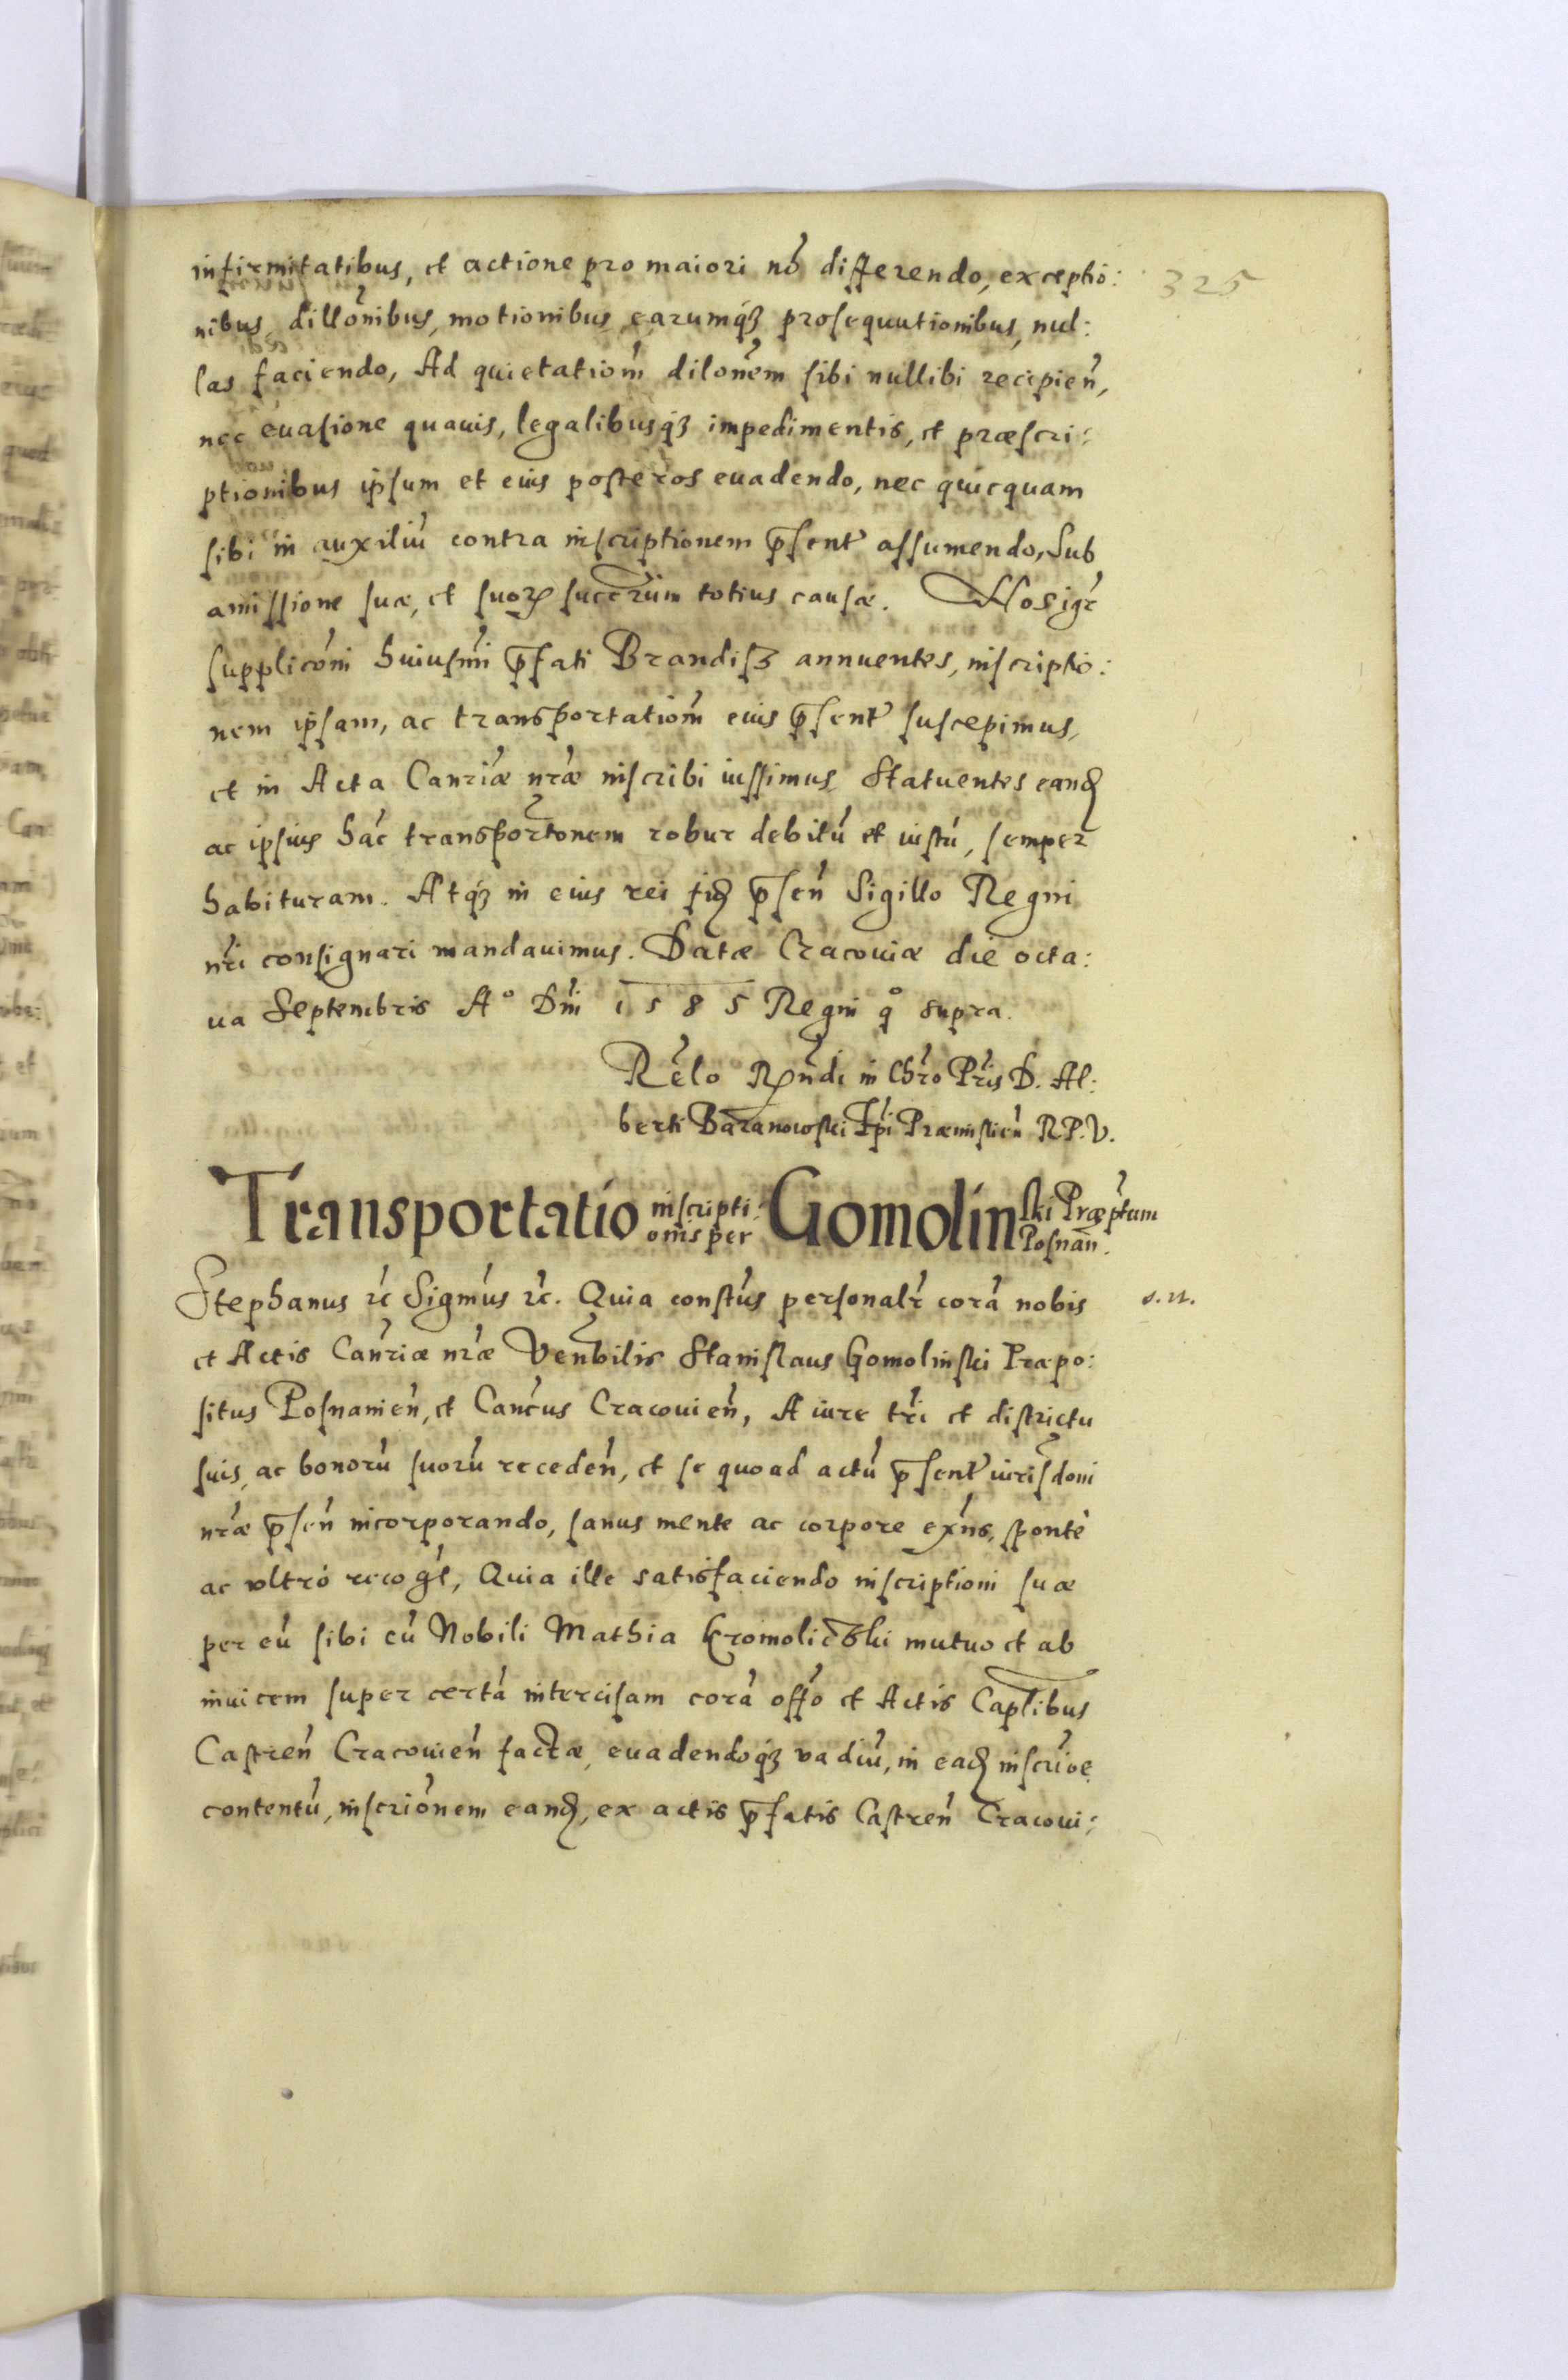 infirmitatibus, et actione pro maiori nō differendo, exceptio:
325
nibus, dillōnibus, motionibus, earumq₃ prosequutionibus, nul:
las faciendo, Ad quietatiom̄ dilonēm sibi nullibi recipien̄,
nec euasione quauis, legalibusq₃ impedimentis, et præscri:
ptionibus ipsum et eius posteros euadendo, nec quicquam
sibi in auxiliū contra inscriptionem p̄sent̄ assumendo, Sub
amissione suæ, et suorꝝ succr̄um totius causæ. Nos igr̄
supplicōni huiusm̄i p̄fati Brandis₃ annuentes, inscriptio:
nem ipsam, ac transportatiom̄ eius p̄sent̄ suscepimus,
et in Acta Canr̄iæ nr̄æ inscribi iussimus, Statuentes eanđ
ac ipsius hāc transportōnem robur debitū et iustū, semper
habituram. Atq₃ in eius rei fiđ p̄sen̄ Sigillo Regni
nr̄i consignari mandauimus. Datæ Cracouiæ die octa:
ua Septembris Aº Dn̄i 1585 Regni qº supra.
Rēlo Rn̄di in Chr̄o Pr̄is D. Al:
berti Baranowski Ep̄i Præmislien̄ R.P.V.
Transportatio inscripti:onis per Gomolinski Præp̄tum Posnan̄.
Stephanus rc̄ Sigm̄us rc̄. Quia constūs personalr̄ corā nobis
s. n.
et Actis Canr̄iæ nr̄æ Venb̄ilis Stanislaus Gomolinski Præpo:
situs Posnanien̄, et Canc̄us Cracouien̄, A iure tr̄i et districtu
suis, ac bonorū suorū receden̄, et se quoad actū p̄sent̄ iurisdōni
nr̄æ p̄sen̄ incorporando, sanus mente ac corpore exn̄s, sponte
ac vltro recogt̄, Quia ille satisfaciendo inscriptioni suæ
per eū sibi cū Nobili Mathia Kromolic̄ski mutuo et ab
inuicem super certā intercisam corā offō et Actis Capt̄libus
Castren̄ Cracouien̄ factæ, euadendoq₃ vadiū, in eađ inscrīoe
contentū, inscriōnem eanđ, ex actis p̄fatis Castren̄ Cracoui: